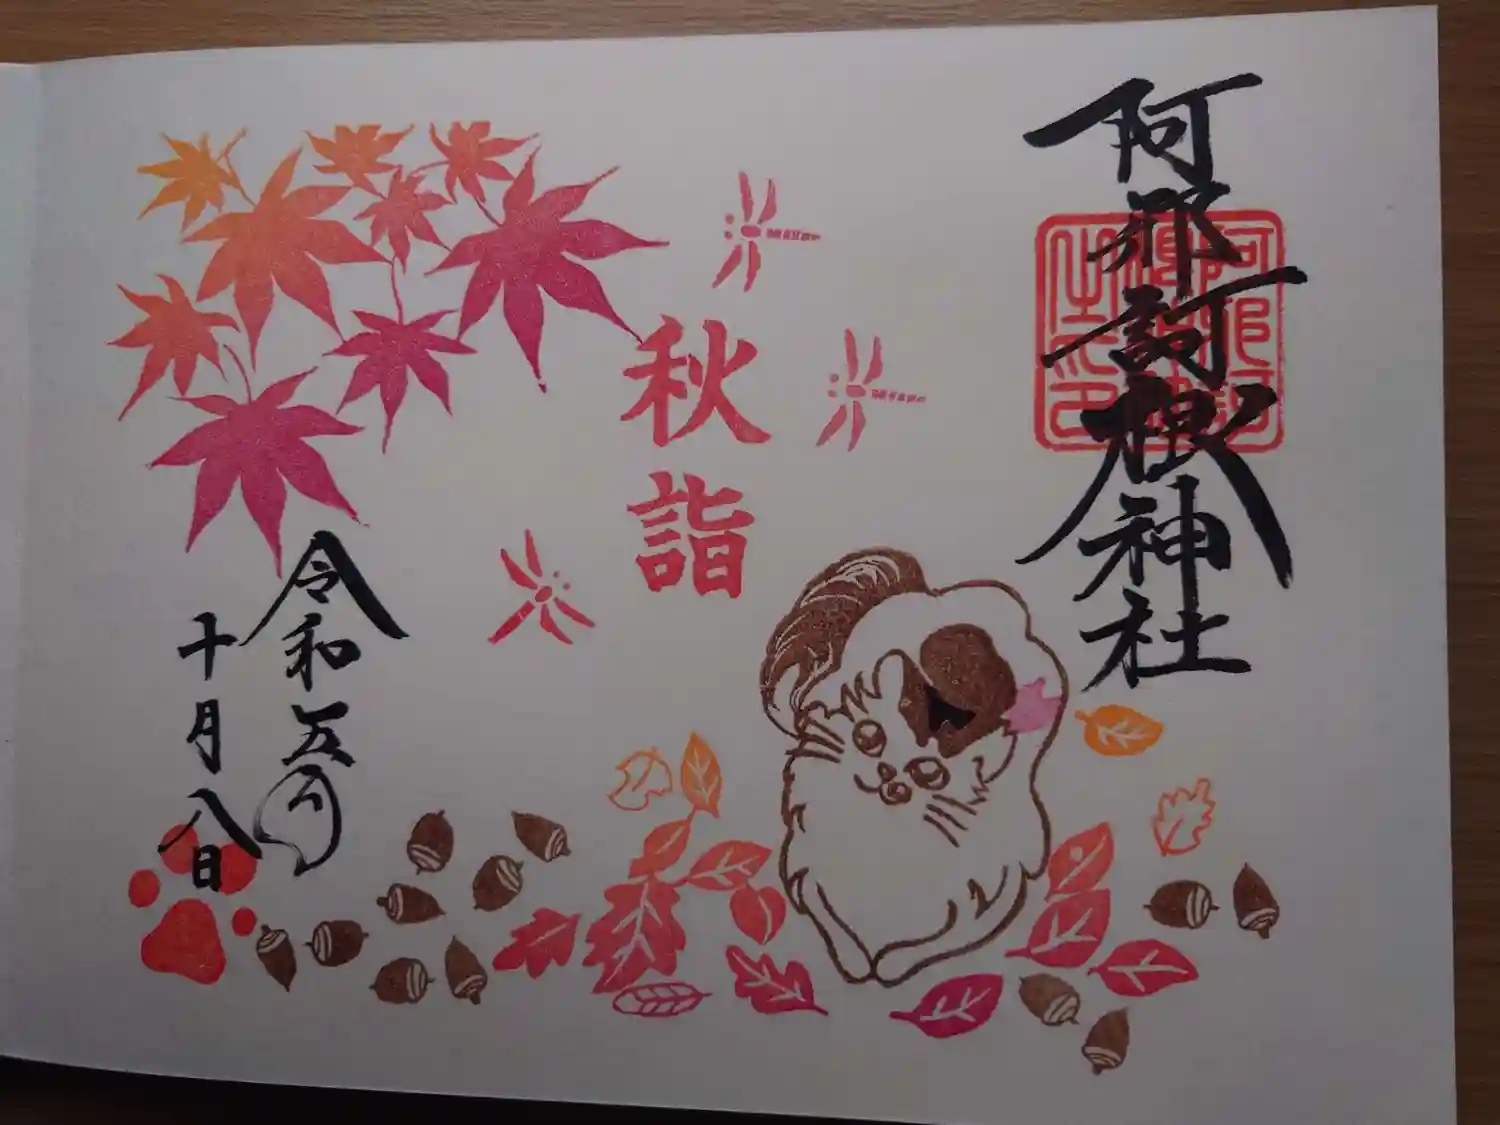 阿那訶根神社
秋詣
令和五年
十月八日